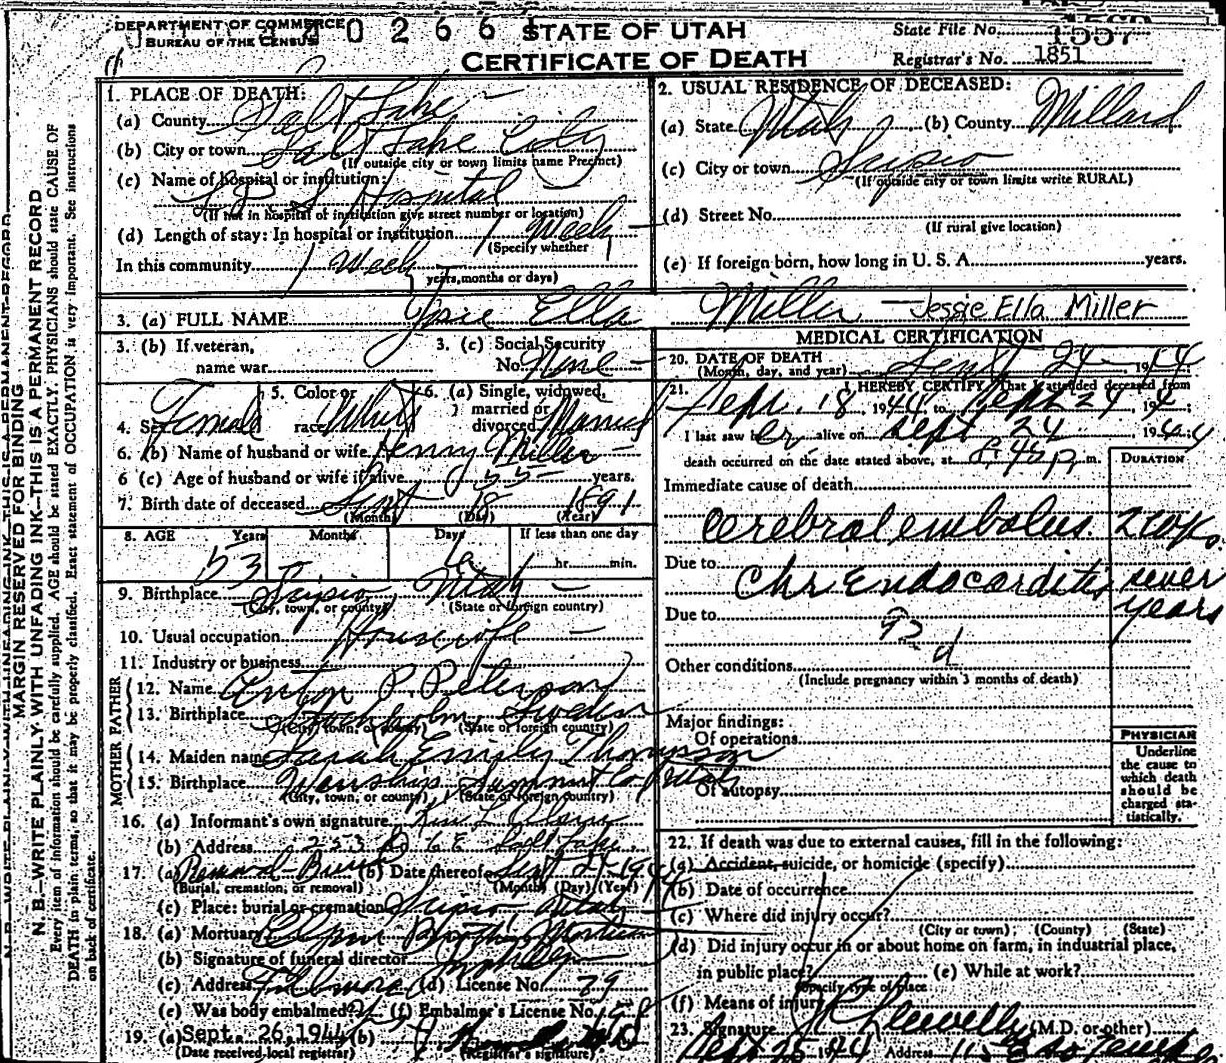 DEPARTMENT OF COMMERCE
BUREAU OF THE CENSUS
0 2 6 6
STATE OF UTAH
CERTIFICATE OF DEATH
State File No. 1557
Registrar's No. 1851
MARGIN RESERVED FOR BINDING
N. B.—WRITE PLAINLY WITH UNFADING INK—THIS IS A PERMANENT RECORD
Every item of information should be carefully supplied. AGE should be stated EXACTLY. PHYSICIANS should state CAUSE OF
DEATH in plain terms, so that it may be properly classified. Exact statement of OCCUPATION is very important. See instructions
on back of certificate.
1. PLACE OF DEATH:
(a) County Salt Lake
(b) City or town Salt Lake City
(If outside city or town limits name Precinct)
(c) Name of hospital or institution:
L D S Hospital
(If not in hospital or institution give street number or location)
(d) Length of stay: In hospital or institution 1 Week
(Specify whether
In this community 1 Week
years, months or days)
2. USUAL RESIDENCE OF DECEASED:
(a) State Utah (b) County Millard
(c) City or town Scipio
(If outside city or town limits write RURAL)
(d) Street No.
(If rural give location)
(e) If foreign born, how long in U. S. A. years.
3. (a) FULL NAME Jessie Ella Miller — Jessie Ella Miller
3. (b) If veteran,
name war
3. (c) Social Security
No. None
4. Sex Female
5. Color or
race White
6. (a) Single, widowed,
married or
divorced Married
6. (b) Name of husband or wife Henry Miller
6 (c) Age of husband or wife if alive 55 years.
7. Birth date of deceased Sept 18 1891
(Month) (Day) (Year)
8. AGE Years Months Days If less than one day
53 6 hr. min.
9. Birthplace Scipio, Utah
(City, town, or county) (State or foreign country)
10. Usual occupation Housewife
11. Industry or business
FATHER
12. Name Anton P. Peterson
13. Birthplace Stockholm, Sweden
(City, town, or county) (State or foreign country)
MOTHER
14. Maiden name Sarah Emily Thompson
15. Birthplace Wanship Summit Co Utah
(City, town, or county) (State or foreign country)
16. (a) Informant's own signature
(b) Address 253 So 6 E Salt Lake
17. (a) Removal-Burial (b) Date thereof Sept 27 1944
(Burial, cremation, or removal) (Month) (Day) (Year)
(c) Place: burial or cremation Scipio Utah
18. (a) Mortuary Brothers Mortuary
(b) Signature of funeral director
(c) Address Fillmore (d) License No. 79
(e) Was body embalmed? (f) Embalmer's License No.
19. (a) Sept. 26, 1944 (b)
(Date received local registrar) (Registrar's signature)
MEDICAL CERTIFICATION
20. DATE OF DEATH
(Month, day, and year) Sept 24 1944
21. I HEREBY CERTIFY, That I attended deceased from
Sept. 18 1944 to Sept 24, 194
I last saw her alive on Sept 24 1944
death occurred on the date stated above, at 8:40 p. m.
DURATION
Immediate cause of death
Cerebral embolus. 2 days.
Due to Chr Endocarditis sever
years
Due to
92 d
Other conditions
(Include pregnancy within 3 months of death)
Major findings:
Of operations
Of autopsy
PHYSICIAN
Underline
the cause to
which death
should be
charged sta-
tistically.
22. If death was due to external causes, fill in the following:
(a) Accident, suicide, or homicide (specify)
(b) Date of occurrence
(c) Where did injury occur?
(City or town) (County) (State)
(d) Did injury occur in or about home on farm, in industrial place,
in public place? (e) While at work?
(Specify type of place
(f) Means of injury
23. Signature (M.D. or other)
Sept 25 1944 Address 115 E So Temple